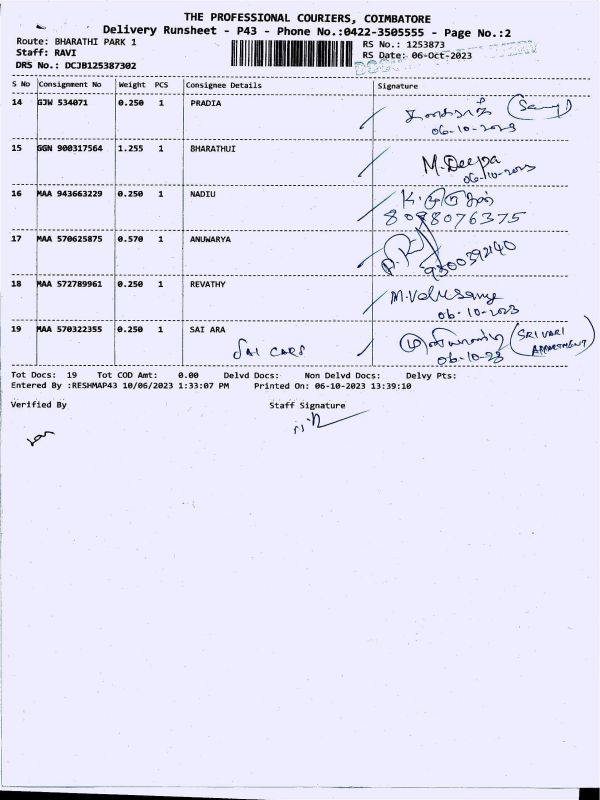 THE PROFESSIONAL COURIERS, COIMBATORE
Delivery Runsheet - P43 - Phone No.:0422-3505555 - Page No.:2
Route: BHARATHI PARK 1
Staff: RAVI
DRS No.: DCJB125387302
RS No.: 1253873
RS Date: 06-Oct-2023
S No Consignment No Weight PCS Consignee Details Signature
14 GJW 534071 0.250 1 PRADIA
06-10-2023
15 GGN 900317564 1.255 1 BHARATHUI M.Deepa
06-10-2023
16 MAA 943663229 0.250 1 NADIU
8098076375
17 MAA 570625875 0.570 1 ANUWARYA
18 MAA 572789961 0.250 1 REVATHY M.Velusamy
06-10-2023
19 MAA 570322355 0.250 1 SAI ARA (SRI VARI APPARTMENT)
SAI CARS 06-10-23
Tot Docs: 19 Tot COD Amt: 0.00 Delvd Docs: Non Delvd Docs: Delvy Pts:
Entered By :RESHMAP43 10/06/2023 1:33:07 PM Printed On: 06-10-2023 13:39:10
Verified By Staff Signature